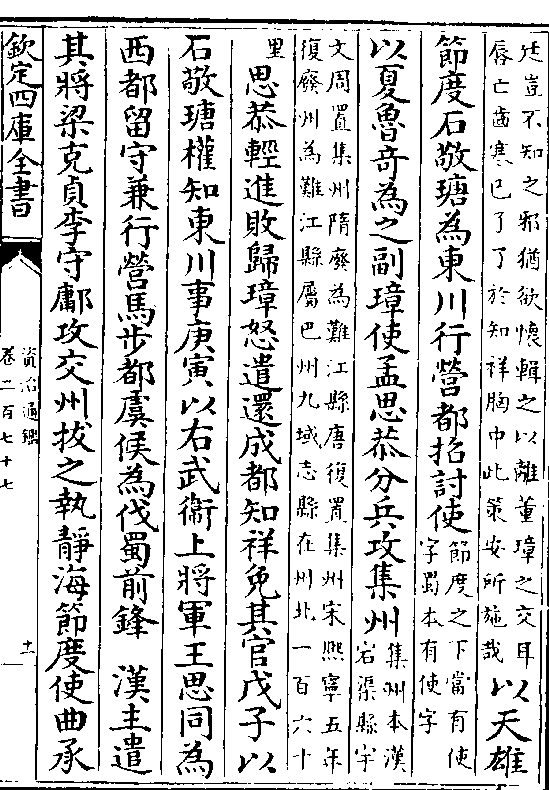 廷豈不知之邪猶欲懷輯之以離董璋之交耳
唇亡齒寒已了了於知祥胸中此策安所施哉
以天雄
節度石敬瑭為東川行營都招討使
節度之下當有使
字蜀本有使字
以夏魯奇為之副璋使孟思恭分兵攻集州
集州本漢
宕渠縣宇
文周置集州隋廢為難江縣唐復置集州宋熙寧五年
復廢州為難江縣屬巴州九域志縣在州北一百六十
里
思恭輕進敗歸璋怒遣還成都知祥免其官戊子以
石敬瑭權知東川事庚寅以右武衞上將軍王思同為
西都留守兼行營馬步都虞候為伐蜀前鋒 漢主遣
其將梁克貞李守鄜攻交州拔之執靜海節度使曲承
欽定四庫全書
資治通鑑
卷二百七十七
十一